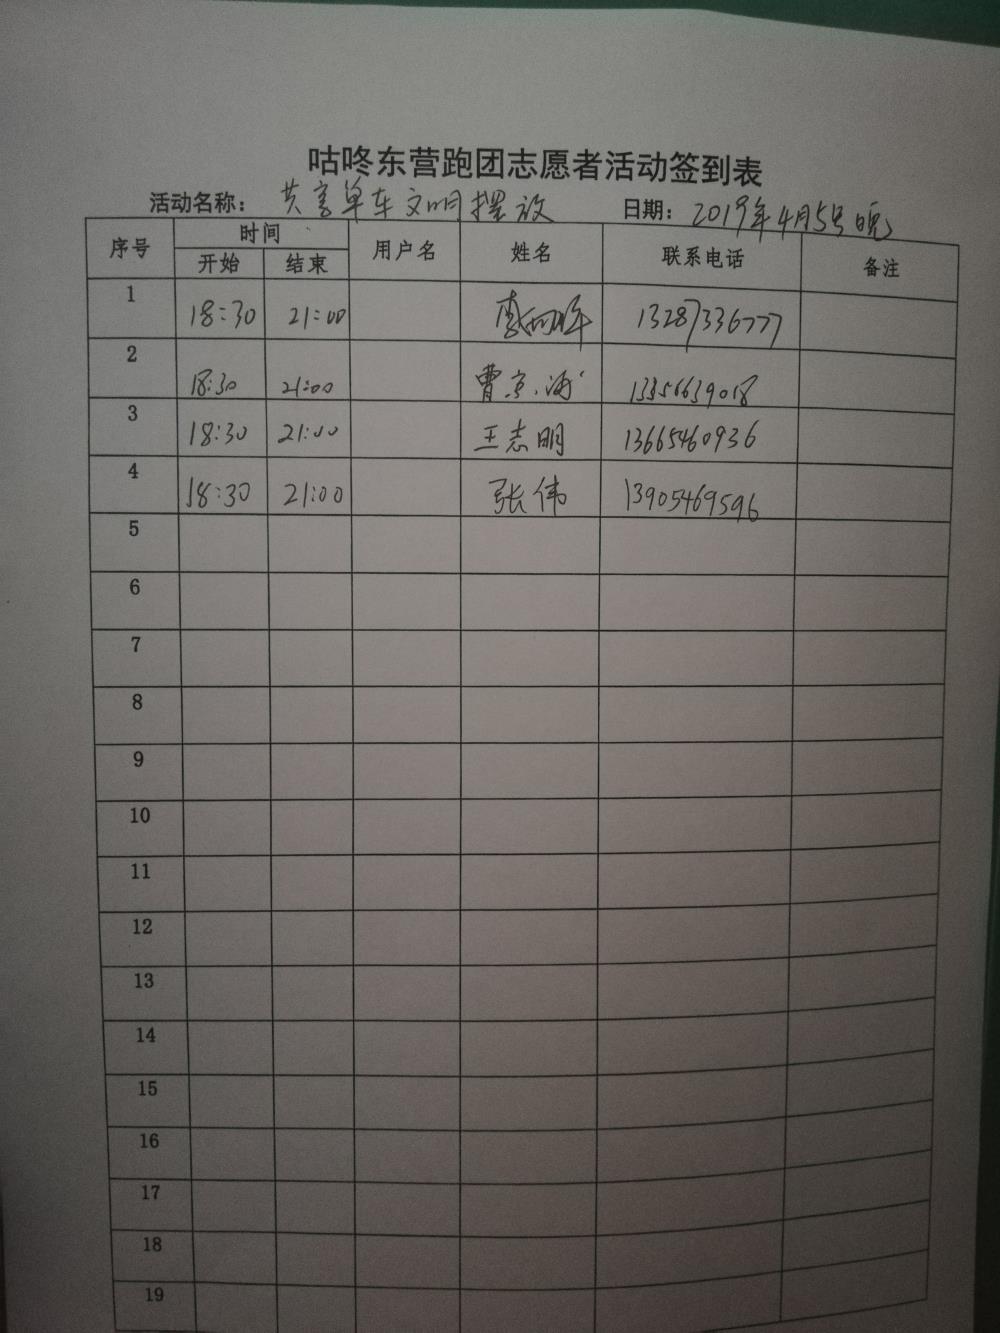 咕咚东营跑团志愿者活动签到表
活动名称： 共享单车文明摆放 日期： 2019年4月5号晚
序号 时间 用户名 姓名 联系电话 备注
开始 结束
1 18:30 21:00 13287336777
2 18:30 21:00 曹京涛 13356639018
3 18:30 21:00 王志明 13665460936
4 18:30 21:00 张伟 13905469596
5
6
7
8
9
10
11
12
13
14
15
16
17
18
19